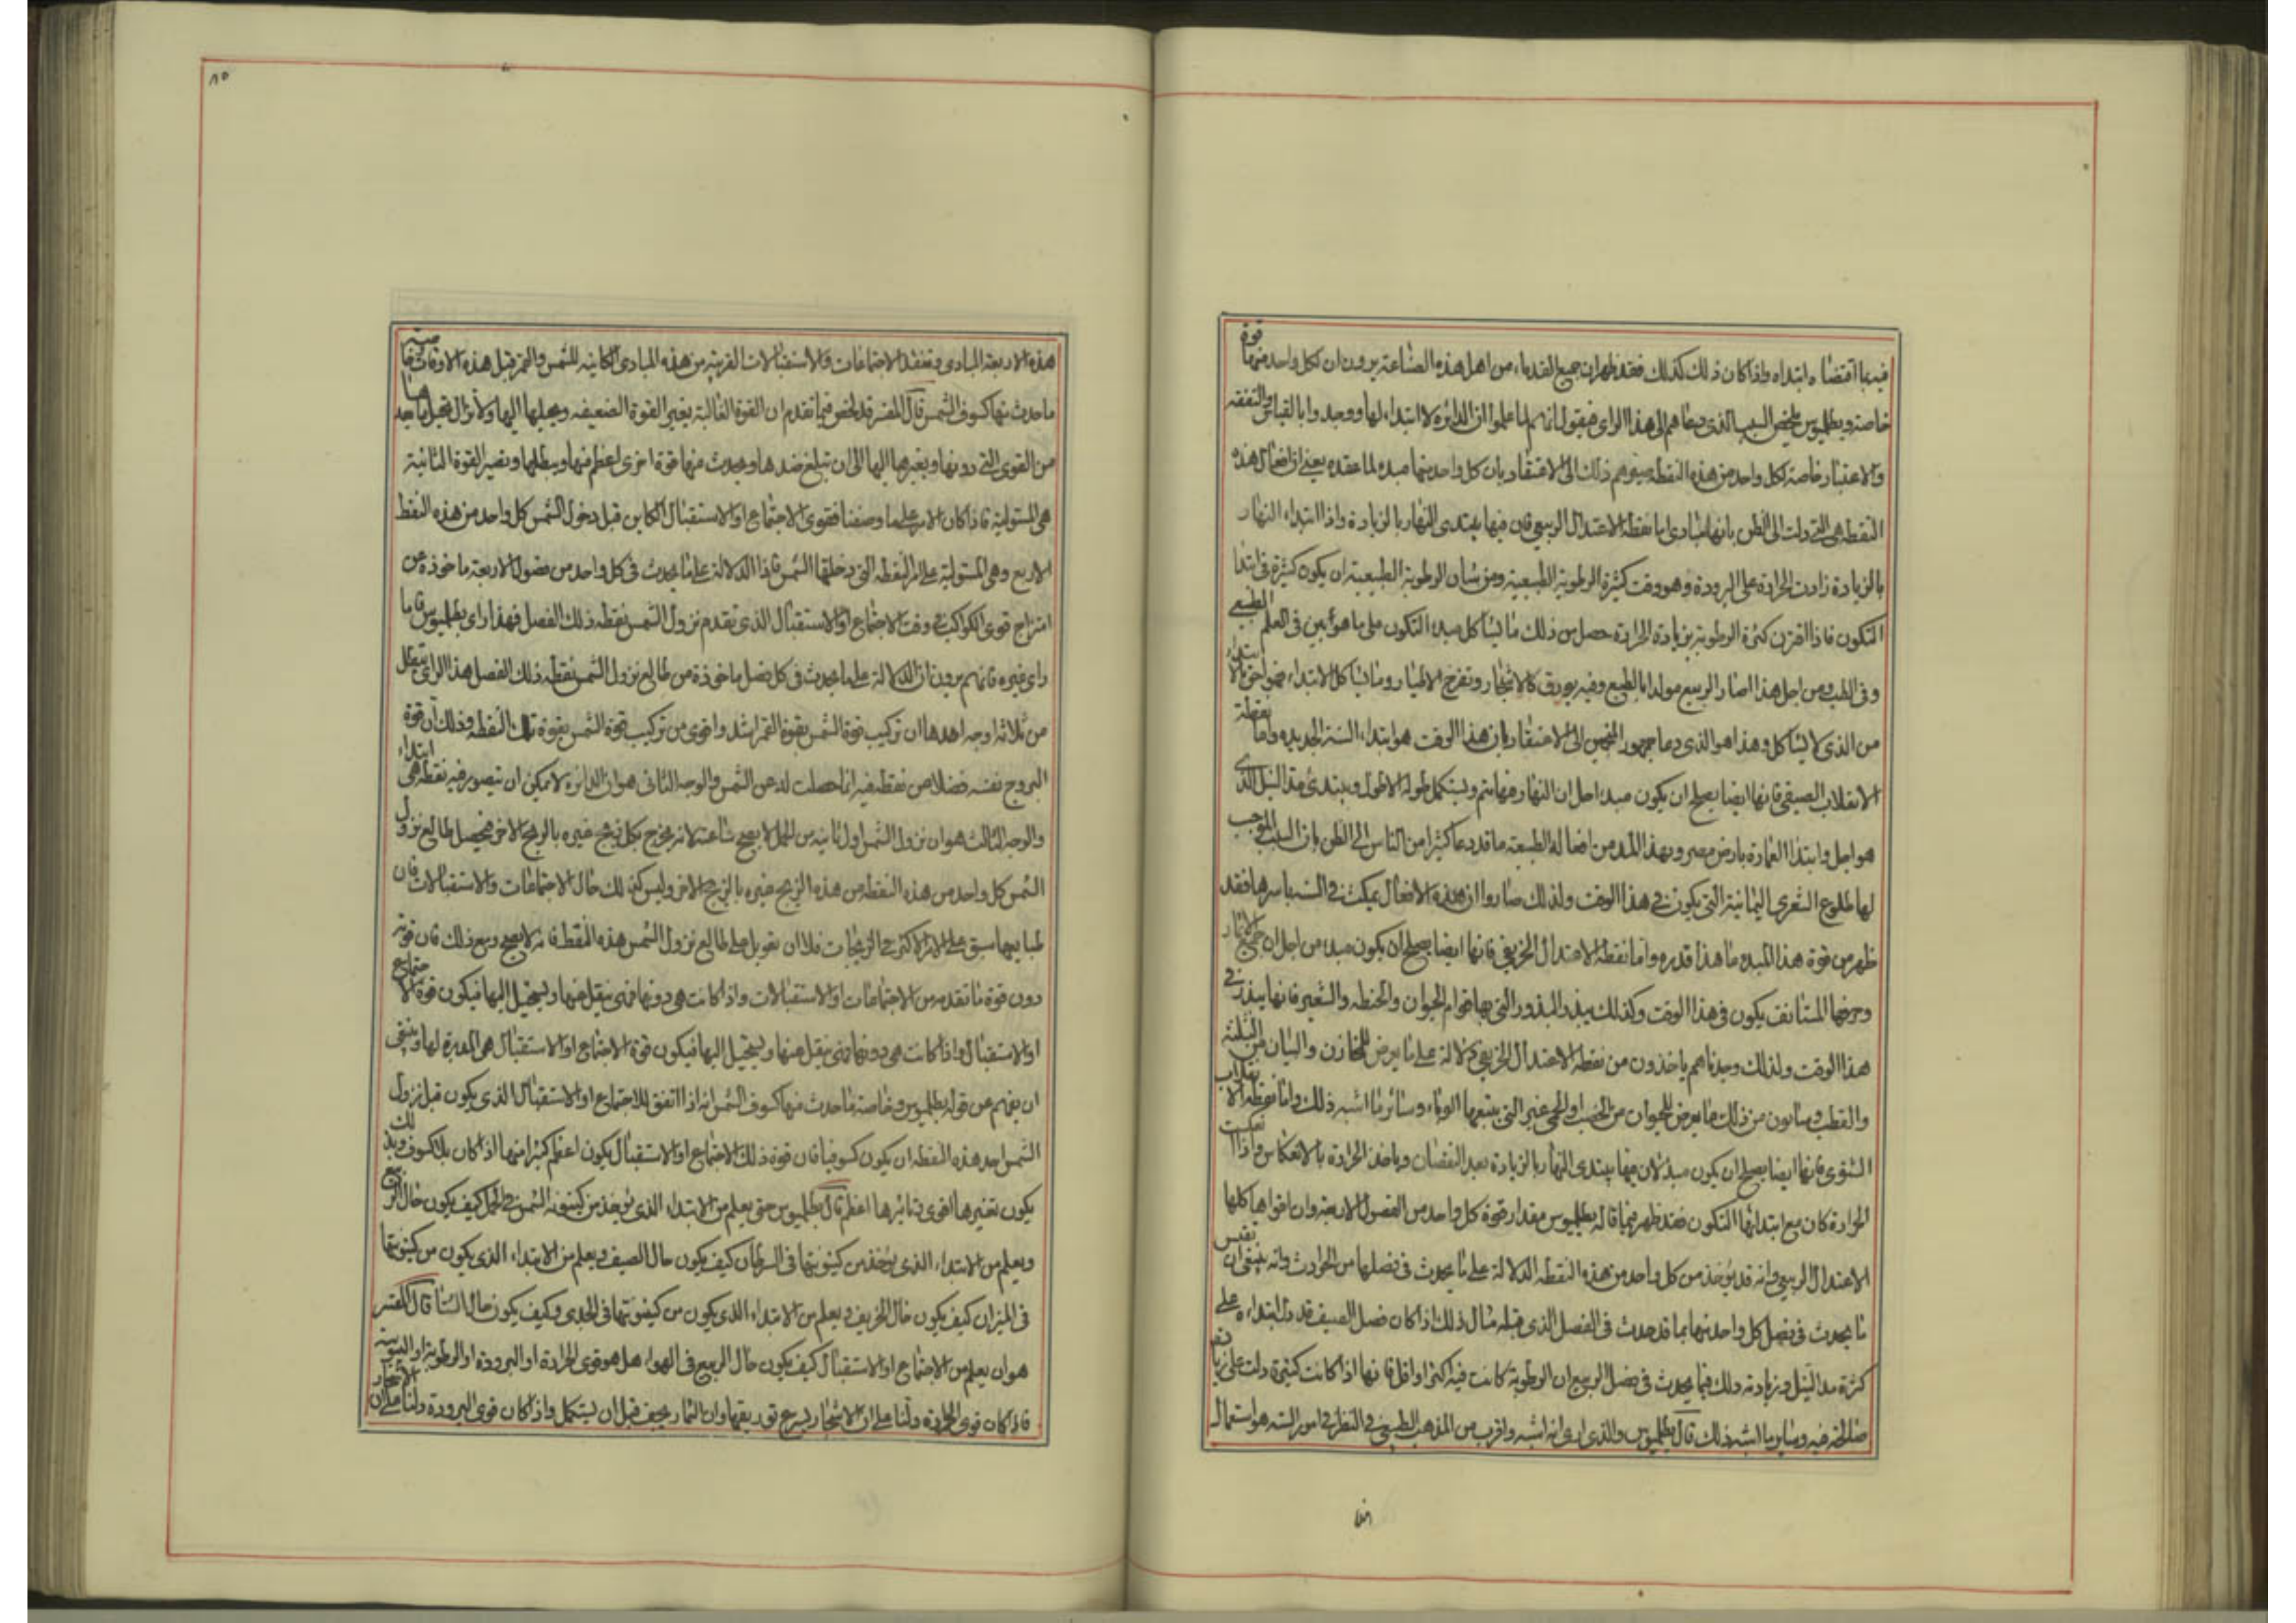 فيها اقتضاه ابتداه واذا كان ذلك كذلك فقد ظهر ان جميع القدماء من اهل هذه الصناعة يرون ان لكل واحد منهما قوة
خاصة وبطلميوس يلخص السبب الذى دعاهم الى هذا الراى فيقول انهم لما علموا ان الدائرة لا ابتداء لها ووجدوا بالقياس والتفقه
والاعتبار خاصة لكل واحد من هذه النقطه ذلك الى الاعتقاد بان كل واحد منهما مبدء لما عقده يعنى ان افعال هذه
النقطه هى التى دلت الى الظن بانها مبادى اما نقطه الاعتدال الربيعى فان فيها يبتدى النهار بالزيادة واذا ابتداء النهار
بالزيادة زادت الحرارة على البرودة وهو وقت كثرة الرطوبة الطبيعية ومن شان الرطوبة الطبيعية ان يكون كثيرة فى ابتدا
التكون فاذا اقترن كثرة الرطوبة بزيادة الحرارة حصل من ذلك ما يشاكل مبدء التكون على ما هو ابين فى العلم الطبيعى
وفى الطب ومن اجل هذا صار الربيع مولدا بالطبع وفيه يورق كالاشجار وتفرخ الاطيار وما يشاكل الابتداء فهو احق بالابتداء
من الذى لا يشاكل وهذا هو الذى دعا جمهور المنجمين الى الاعتقاد بان هذا الوقت هو ابتداء السنة الجديده واما نقطة
الانقلاب الصيفى فانها ايضا يصلح ان يكون مبدء اجل ان النهار فيها يتم ويستكمل طوله الاطول ويبتدئ مد النيل الذى
هو اجل وابتدا العمارة بارض مصر وبهذا المد من افعاله الطبيعة ما قد دعا كثيرا من الناس الى الظن بان السبب الموجب
لها طلوع الشعرى اليمانية التى يكون فى هذا الوقت ولذلك صاروا ان هذه الافعال يمكث فى السنه باسرها فقد
ظهر من قوة هذا المبدء ما هذا قدره واما نقطه الاعتدال الخريفى فانها ايضا يصلح ان يكون مبدء من اجل ان جميع الاثار
المستانف يكون فى هذا الوقت وكذلك يبذر البذور التى بها قوام الحيوان والحنطه والشعير فانها يبذر فى
هذا الوقت ولذلك وجدناهم ياخذون من نقطه الاعتدال الخريفى دلالة على ما يعرض للمخازن
والقطب من ذلك ما يعرض للحيوان من الخصب او الحمى غير التى يتبعها الوباء وسائر ما اشبه ذلك واما نقطه الانقلاب
الشتوى فانها ايضا يصلح ان يكون مبدء لان فيها يبتدى النهار بالزيادة بعد النقصان وياخذ الحرارة بالانعكاس واذا انعكست
الحرارة كان مع ابتدائها التكون فقد ظهر فيما قاله بطلميوس مقدار قوة كل واحد من الفصول الاربعة وان اقواها كلها
الاعتدال الربيعى وانه قد يؤخذ من كل واحد من هذه النقطه الدلالة على ما يحدث فى فصلها من الحوادث وانه ينبغى ان نقيس
ما يحدث فى فصل كل واحد منها بما قد حدث فى الفصل الذى قبله مثال ذلك اذا كان فصل الصيف قد دل ابتداءه على
كثرة مد النيل وزيادته وذلك فيما يحدث فى فصل الربيع ان الرطوبة كانت فيه اكثر او اقل فانها اذا كانت كثيرة دلت على
فيه وساير ما اشبه ذلك قال بطلميوس والذى ارى انه اشبه واقرب من المذهب الطبيعى فى النظر فى امور السنه هو استعمال
٨٥
هذه الاربعة المبادى وتفقد الاجتماعات والاستقبالات القريبة من هذه المبادى الكائنه للشمس والقمر قبل هذه الاوقات وخاصة
ما حدث منها كسوف الشمس قال المفسر قد لخص فيما تقدم ان القوة الغالبة يغير القوة الضعيفه ويحيلها اليها ولا يزال
من القوى التى دونها ويغيرها اليها الى ان تبلغ ضدها ويحدث منها قوة اخرى اعظم منها ويبطلها وتصير القوة الثانية
هى المستولية فاذا كان الامر على ما وصفنا فقوى الاجتماع او الاستقبال الكاين قبل دخول الشمس كل واحد من هذه النقط
الاربع وهى المستولية على امر النقطه التى دخلتها الشمس فاذا الدلالة على ما يحدث فى كل واحد من فصول الاربعة ماخوذة من
امتزاج قوى الكواكب فى وقت الاجتماع او الاستقبال الذى تقدم نزول الشمس نقطه ذلك الفصل فهذا راى بطلميوس فاما
راى غيره فانهم يرون ان الدلالة على ما يحدث فى كل فصل ماخوذة من طالع نزول الشمس نقطه ذلك الفصل هذا الراى يبطل
من ثلاثه اوجه احدها ان تركيب قوة الشمس بقوة القمر اشد واقوى من تركيب قوة الشمس بقوة تلك النقطه وذلك ان قوة
البروج نفسه فضلا من نقطه فيه انما حصلت له من الشمس والوجه الثانى هو ان الدائرة لا يمكن ان يتصور فيه نقطه هى ابتداء
والوجه الثالث هو ان نزول الشمس اول ثانيه من الحمل لا يصح ساعته لانه يخرج بكل زيج غيره بالزيج الاخر فيحصل طالع نزول
الشمس كل واحد من هذه النقطه من هذه الزيج غيره بالزيج الاخر وليس كذلك حال الاجتماعات والاستقبالات فان
على الامر الاكثر فى الزيجات فلا ان يعول على طالع نزول الشمس هذه النقط فانه لا يصح ومع ذلك فان قوته
دون قوة ما تقدمه من الاجتماعات او الاستقبالات واذا كانت هى دونها فهى ينقل عنها ويستحيل اليها فيكون قوة الاجتماع
او الاستقبال واذا كانت هى دونها فهى ينقل عنها ويستحيل اليها فيكون قوة الاجتماع او الاستقبال هى المدبرة لها وينبغى
ان يفهم عن قوله بطلميوس وخاصة ما حدث منها كسوف الشمس انه اذا اتفق للاجتماع او الاستقبال الذى يكون قبل نزول
الشمس احد هذه النقطه ان يكون كسوفيا فان قوة ذلك الاجتماع او الاستقبال يكون اعظم كثيرا منها اذا كان بلا كسوف وبذلك
يكون تغيرها اقوى وتاثيرها اعظم قال بطلميوس حتى يعلم من الابتداء الذى يؤخذ من كينونه الشمس فى الحمل كيف يكون حال الربيع
ويعلم من الابتداء الذى يؤخذ من كينونتها فى السرطان كيف يكون حال الصيف ويعلم من الابتداء الذى يكون من كينونتها
فى الميزان كيف يكون حال الخريف ويعلم من الابتداء الذى يكون من كينونتها فى الجدى وكيف يكون حال الشتا قال المفسر
هو ان يعلم من الاجتماع او الاستقبال كيف يكون حال الربيع فى الهواء هل هو قوى الحرارة او البرودة او الرطوبة او اليبوسة
فاذا كان قوى الحرارة دلنا على ان الاشجار يسرع توريقها وان الثمار يجف قبل ان يستكمل واذا كان قوى البرودة دلنا على ان الاشجار